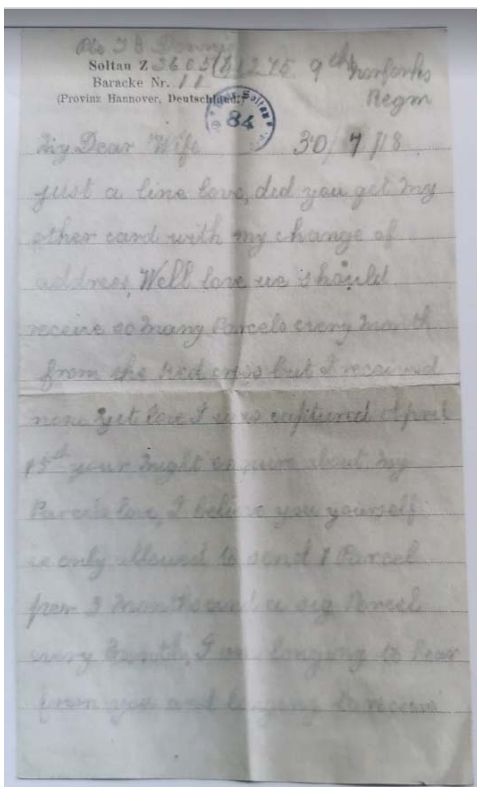 Pte T B
Soltau Z 3665 / 41275 9th Norfolks
Baracke Nr. 11 Regm
(Provinz Hannover, Deutschland.)
Soltau
84
My Dear Wife 30/7/18
just a line love, did you get my
other card with my change of
address, Well love we should
receive so many Parcels every month
from the Red cross but I received
none yet love I was captured April
15th your might enquire about my
Parcels love, I believe you yourself
is only allowed to send 1 Parcel
per 3 months and a cig Parcel
every month, I am longing to hear
from you and longing to receive